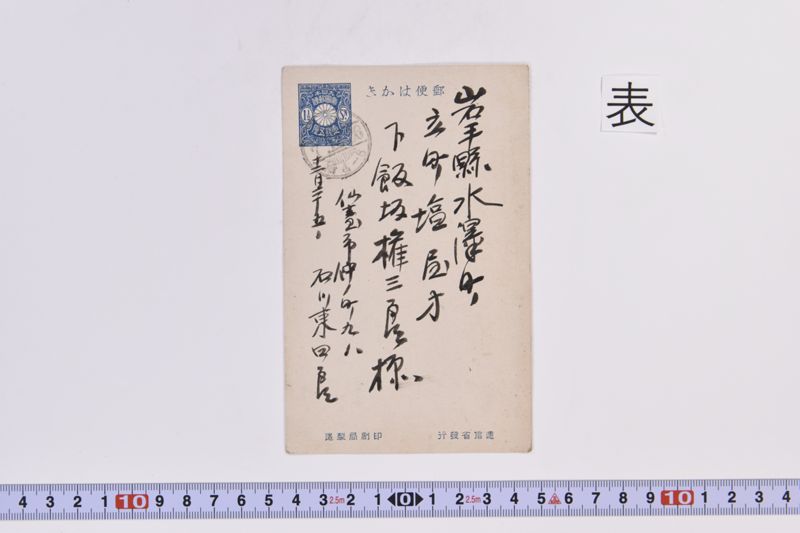 表
郵便はかき
岩手縣水澤町
立町塩屋方
下飯坂権三良様
仙臺市仲ノ町九八
石川東四良
十二月二十五日
逓信省發行
印刷局製造
4 3 2 1 10 9 8 7 6 5 4 3 2.5m 2 1 0 1 2 2.5m 3 4 5 6 7 8 9 10 1 2 3 4